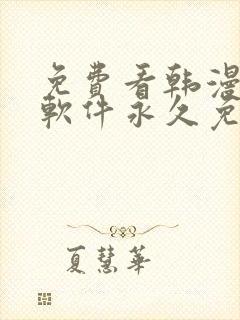 免費看韩漫
軟件永久免
夏慧華